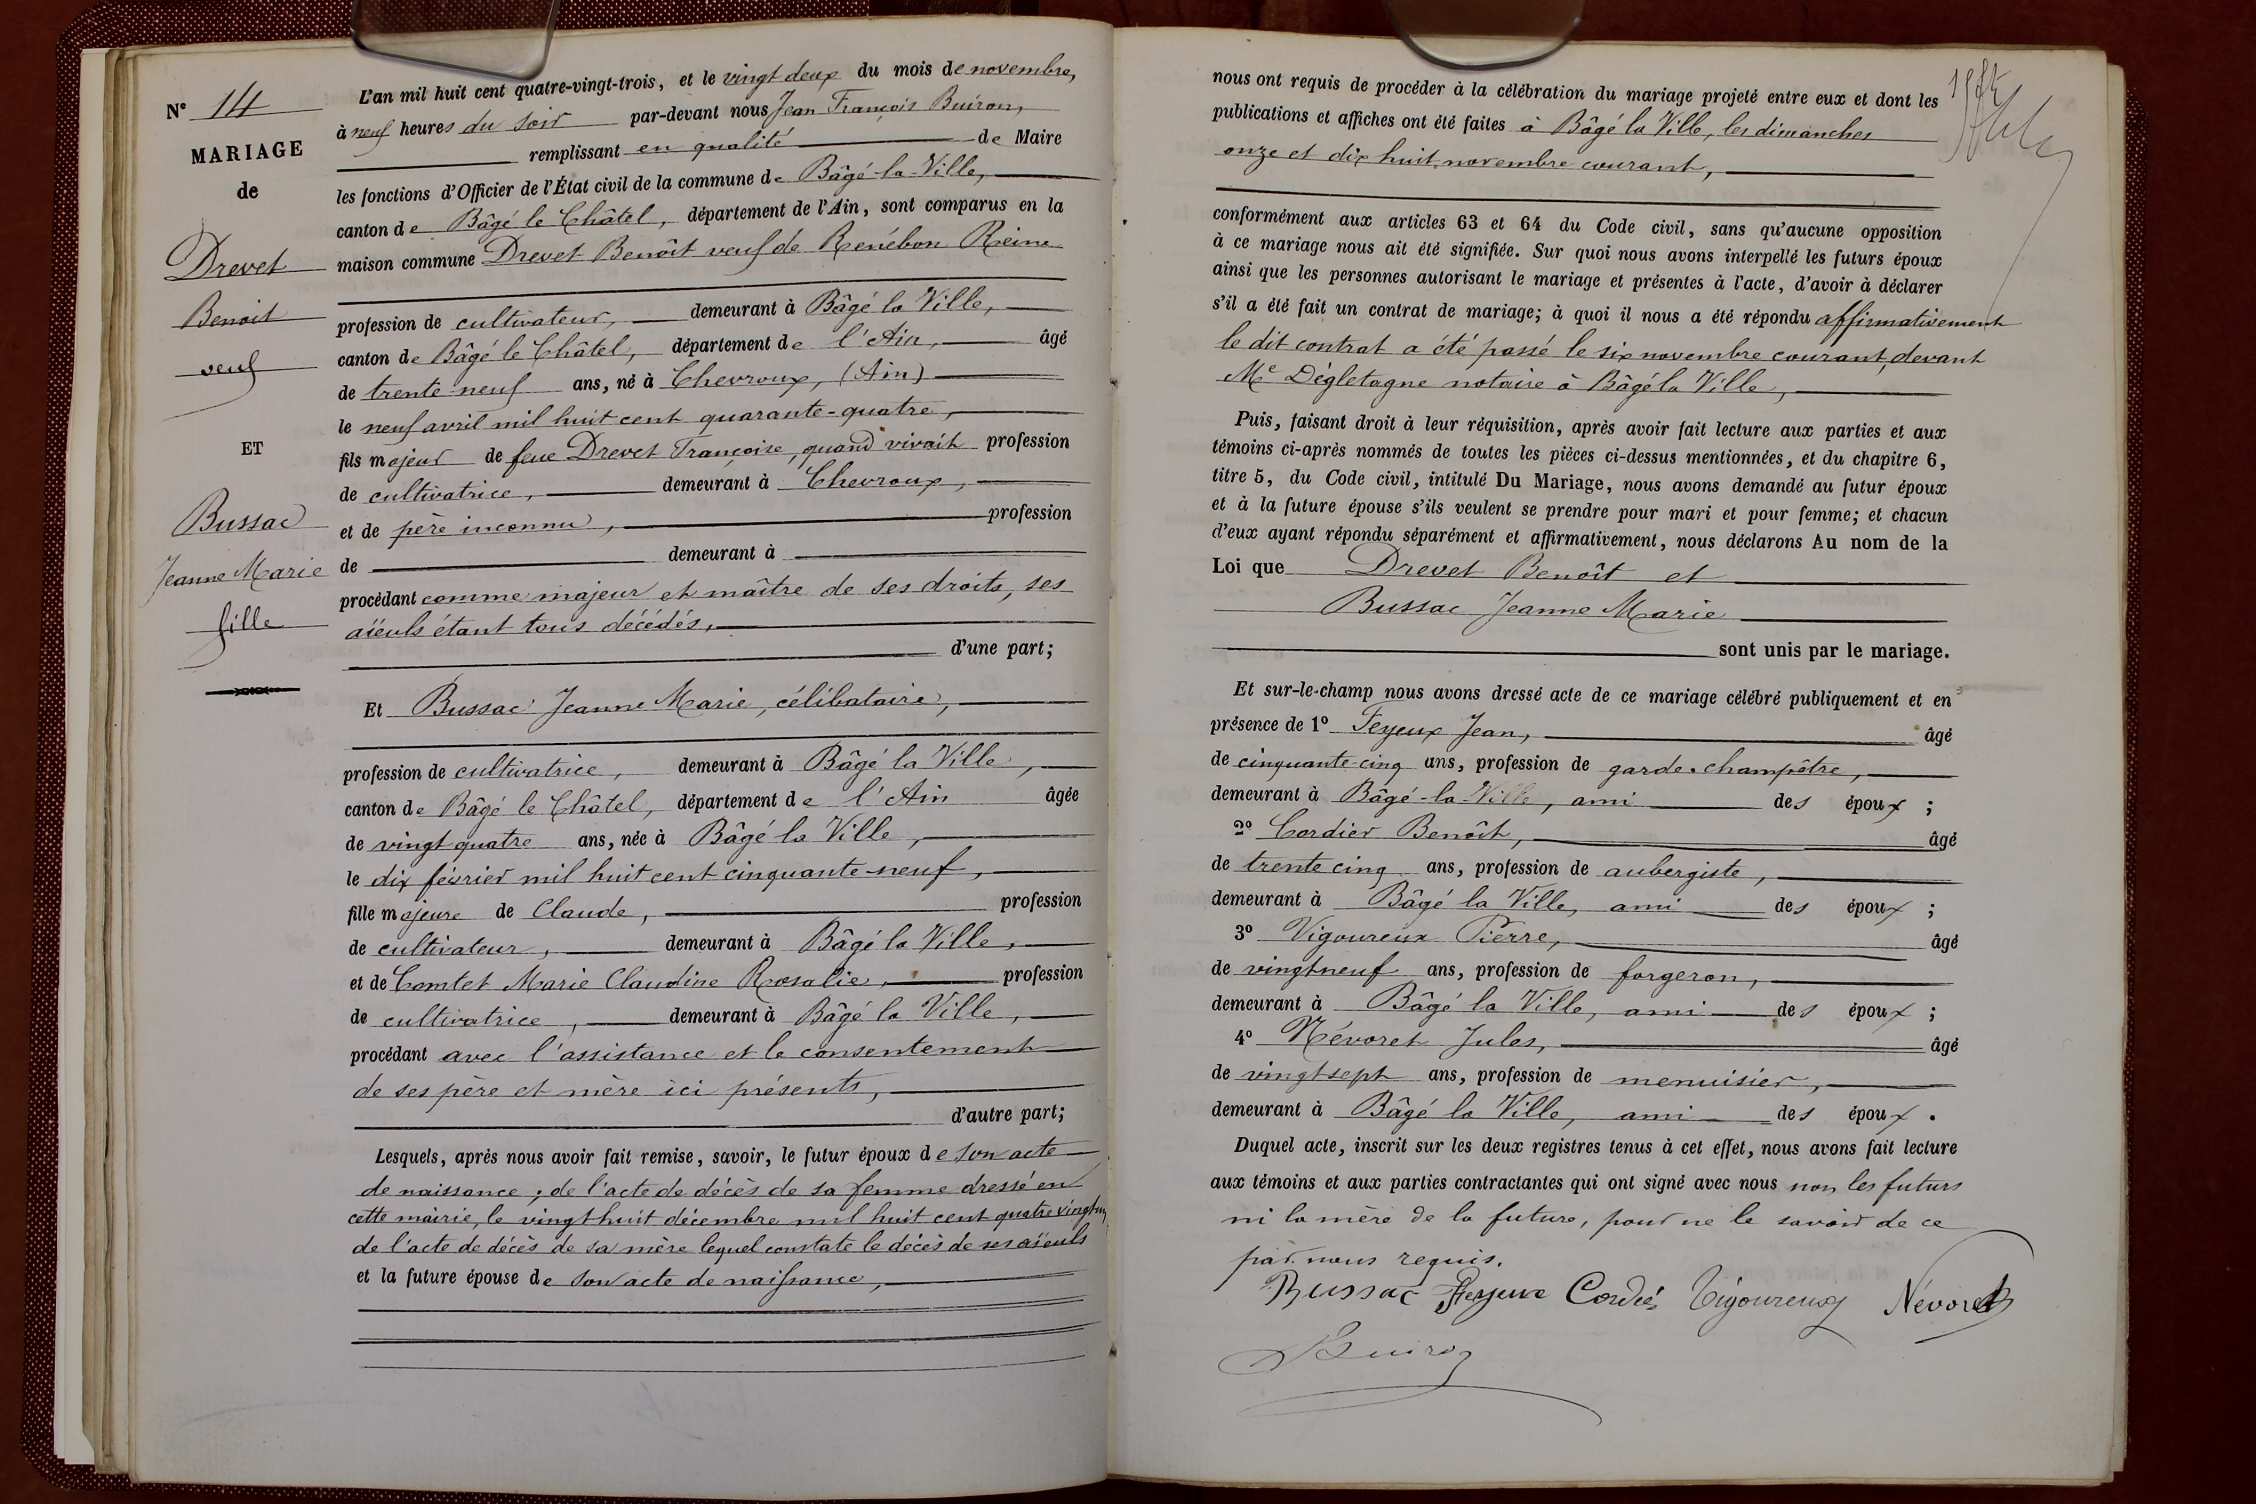 N° 14
MARIAGE
de
Drevet
Benoit
veuf
ET
Bussac
Jeanne Marie
fille
L'an mil huit cent quatre-vingt-trois, et le vingt deux du mois de novembre,
à neuf heures du soir par-devant nous Jean François Buiron,
remplissant en qualité de Maire
les fonctions d'Officier de l'État civil de la commune de Bâgé-la-Ville,
canton de Bâgé le Châtel, département de l'Ain, sont comparus en la
maison commune Drevet Benoît veuf de Renébon Reine
profession de cultivateur, demeurant à Bâgé la Ville,
canton de Bâgé le Châtel, département de l'Ain, âgé
de trente-neuf ans, né à Chevroux, (Ain)
le neuf avril mil huit cent quarante-quatre,
fils majeur de feue Drevet Françoise, quand vivait profession
de cultivatrice, demeurant à Chevroux,
et de père inconnu, profession
de demeurant à
procédant comme majeur et maître de ses droits, ses
aïeuls étant tous décédés,
d'une part;
Et Bussac Jeanne Marie, célibataire,
profession de cultivatrice, demeurant à Bâgé la Ville,
canton de Bâgé le Châtel, département de l'Ain âgée
de vingt quatre ans, née à Bâgé la Ville,
le dix février mil huit cent cinquante-neuf,
fille majeure de Claude, profession
de cultivateur, demeurant à Bâgé la Ville,
et de Comtet Marie Claudine Rosalie, profession
de cultivatrice, demeurant à Bâgé la Ville,
procédant avec l'assistance et le consentement
de ses père et mère ici présents,
d'autre part;
Lesquels, après nous avoir fait remise, savoir, le futur époux de son acte
de naissance; de l'acte de décès de sa femme dressé en
cette mairie, le vingt huit décembre mil huit cent quatre vingt un
de l'acte de décès de sa mère lequel constate le décès de ses aïeuls
et la future épouse de son acte de naissance,
nous ont requis de procéder à la célébration du mariage projeté entre eux et dont les
publications et affiches ont été faites à Bâgé la Ville, les dimanches
onze et dix huit novembre courant,
conformément aux articles 63 et 64 du Code civil, sans qu'aucune opposition
à ce mariage nous ait été signifiée. Sur quoi nous avons interpellé les futurs époux
ainsi que les personnes autorisant le mariage et présentes à l'acte, d'avoir à déclarer
s'il a été fait un contrat de mariage; à quoi il nous a été répondu affirmativement
le dit contrat a été passé le six novembre courant, devant
Me Dégletagne notaire à Bâgé la Ville,
Puis, faisant droit à leur réquisition, après avoir fait lecture aux parties et aux
témoins ci-après nommés de toutes les pièces ci-dessus mentionnées, et du chapitre 6,
titre 5, du Code civil, intitulé Du Mariage, nous avons demandé au futur époux
et à la future épouse s'ils veulent se prendre pour mari et pour femme; et chacun
d'eux ayant répondu séparément et affirmativement, nous déclarons Au nom de la
Loi que Drevet Benoît et
Bussac Jeanne Marie
sont unis par le mariage.
Et sur-le-champ nous avons dressé acte de ce mariage célébré publiquement et en
présence de 1° Feyeux Jean, âgé
de cinquante-cinq ans, profession de garde-champêtre,
demeurant à Bâgé-la-Ville, ami des époux;
2° Cordier Benoît, âgé
de trente cinq ans, profession de aubergiste,
demeurant à Bâgé la Ville, ami des époux;
3° Vigoureux Pierre, âgé
de vingt neuf ans, profession de forgeron,
demeurant à Bâgé la Ville, ami des époux;
4° Névoret Jules, âgé
de vingt sept ans, profession de menuisier,
demeurant à Bâgé la Ville, ami des époux.
Duquel acte, inscrit sur les deux registres tenus à cet effet, nous avons fait lecture
aux témoins et aux parties contractantes qui ont signé avec nous non les futurs
ni la mère de la future, pour ne le savoir de ce
par nous requis.
Bussac Feyeux Cordier Vigoureux Névoret
Buiron